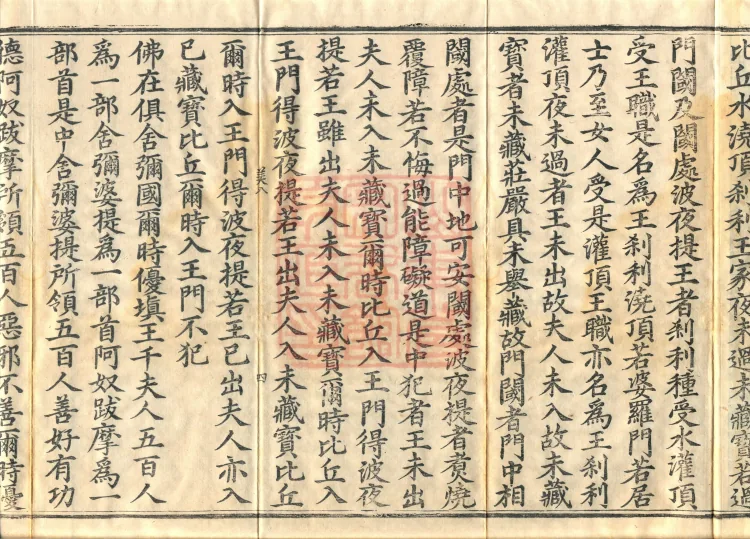 比丘水澆頂刹利王家夜未過未藏寶若過
門閫及閫處波夜提王者刹利種受水灌頂
受王職是名爲王刹利澆頂若婆羅門若居
士乃至女人受是灌頂王職亦名爲王刹利
灌頂夜未過者王未出故夫人未入故未藏
寶者未藏莊嚴具未舉藏故門閫者門中相
閫處者是門中地可安閫處波夜提者煑燒
覆障若不悔過能障礙道是中犯者王未出
夫人未入未藏寶爾時比丘入王門得波夜
提若王雖出夫人未入未藏寶爾時比丘入
王門得波夜提若王出夫人入未藏寶比丘
美八 四
爾時入王門得波夜提若王已出夫人亦入
已藏寶比丘爾時入王門不犯
佛在俱舍彌國爾時優塡王千夫人五百人
爲一部舍彌婆提爲一部首阿奴跋摩爲一
部首是中舍彌婆提所領五百人善好有功
德阿奴跋摩所領五百人惡邪不善爾時優